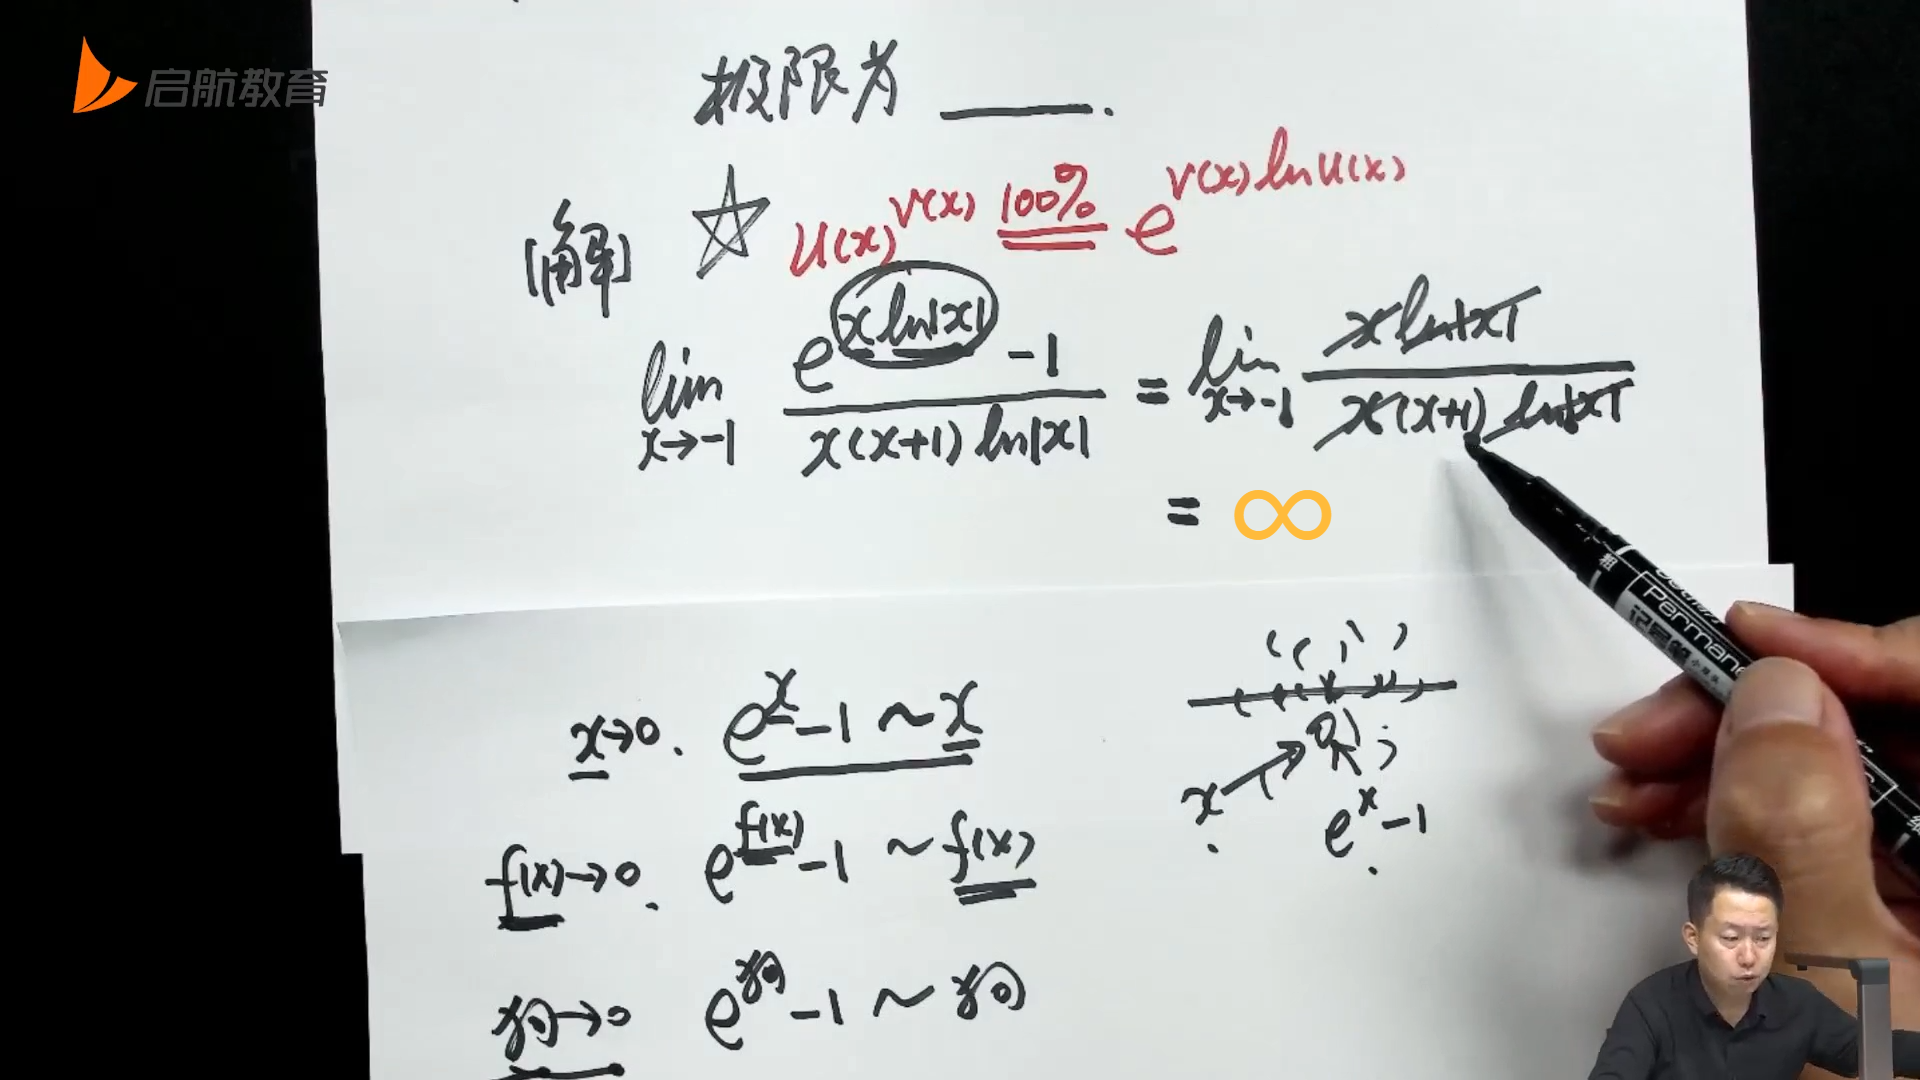 启航教育
极限为 ____.
[解] ☆ u(x)^{v(x)} 100% e^{v(x) ln u(x)}
lim x→-1 (e^{x ln|x|} -1)/(x(x+1) ln|x|) = lim x→-1 (x ln|x|)/(x(x+1) ln|x|)
= ∞
x→0. e^x -1 ~ x
f(x)→0. e^{f(x)} -1 ~ f(x)
狗→0 e^狗 -1 ~ 狗
x
e^x -1
记号笔
Permanen
粗